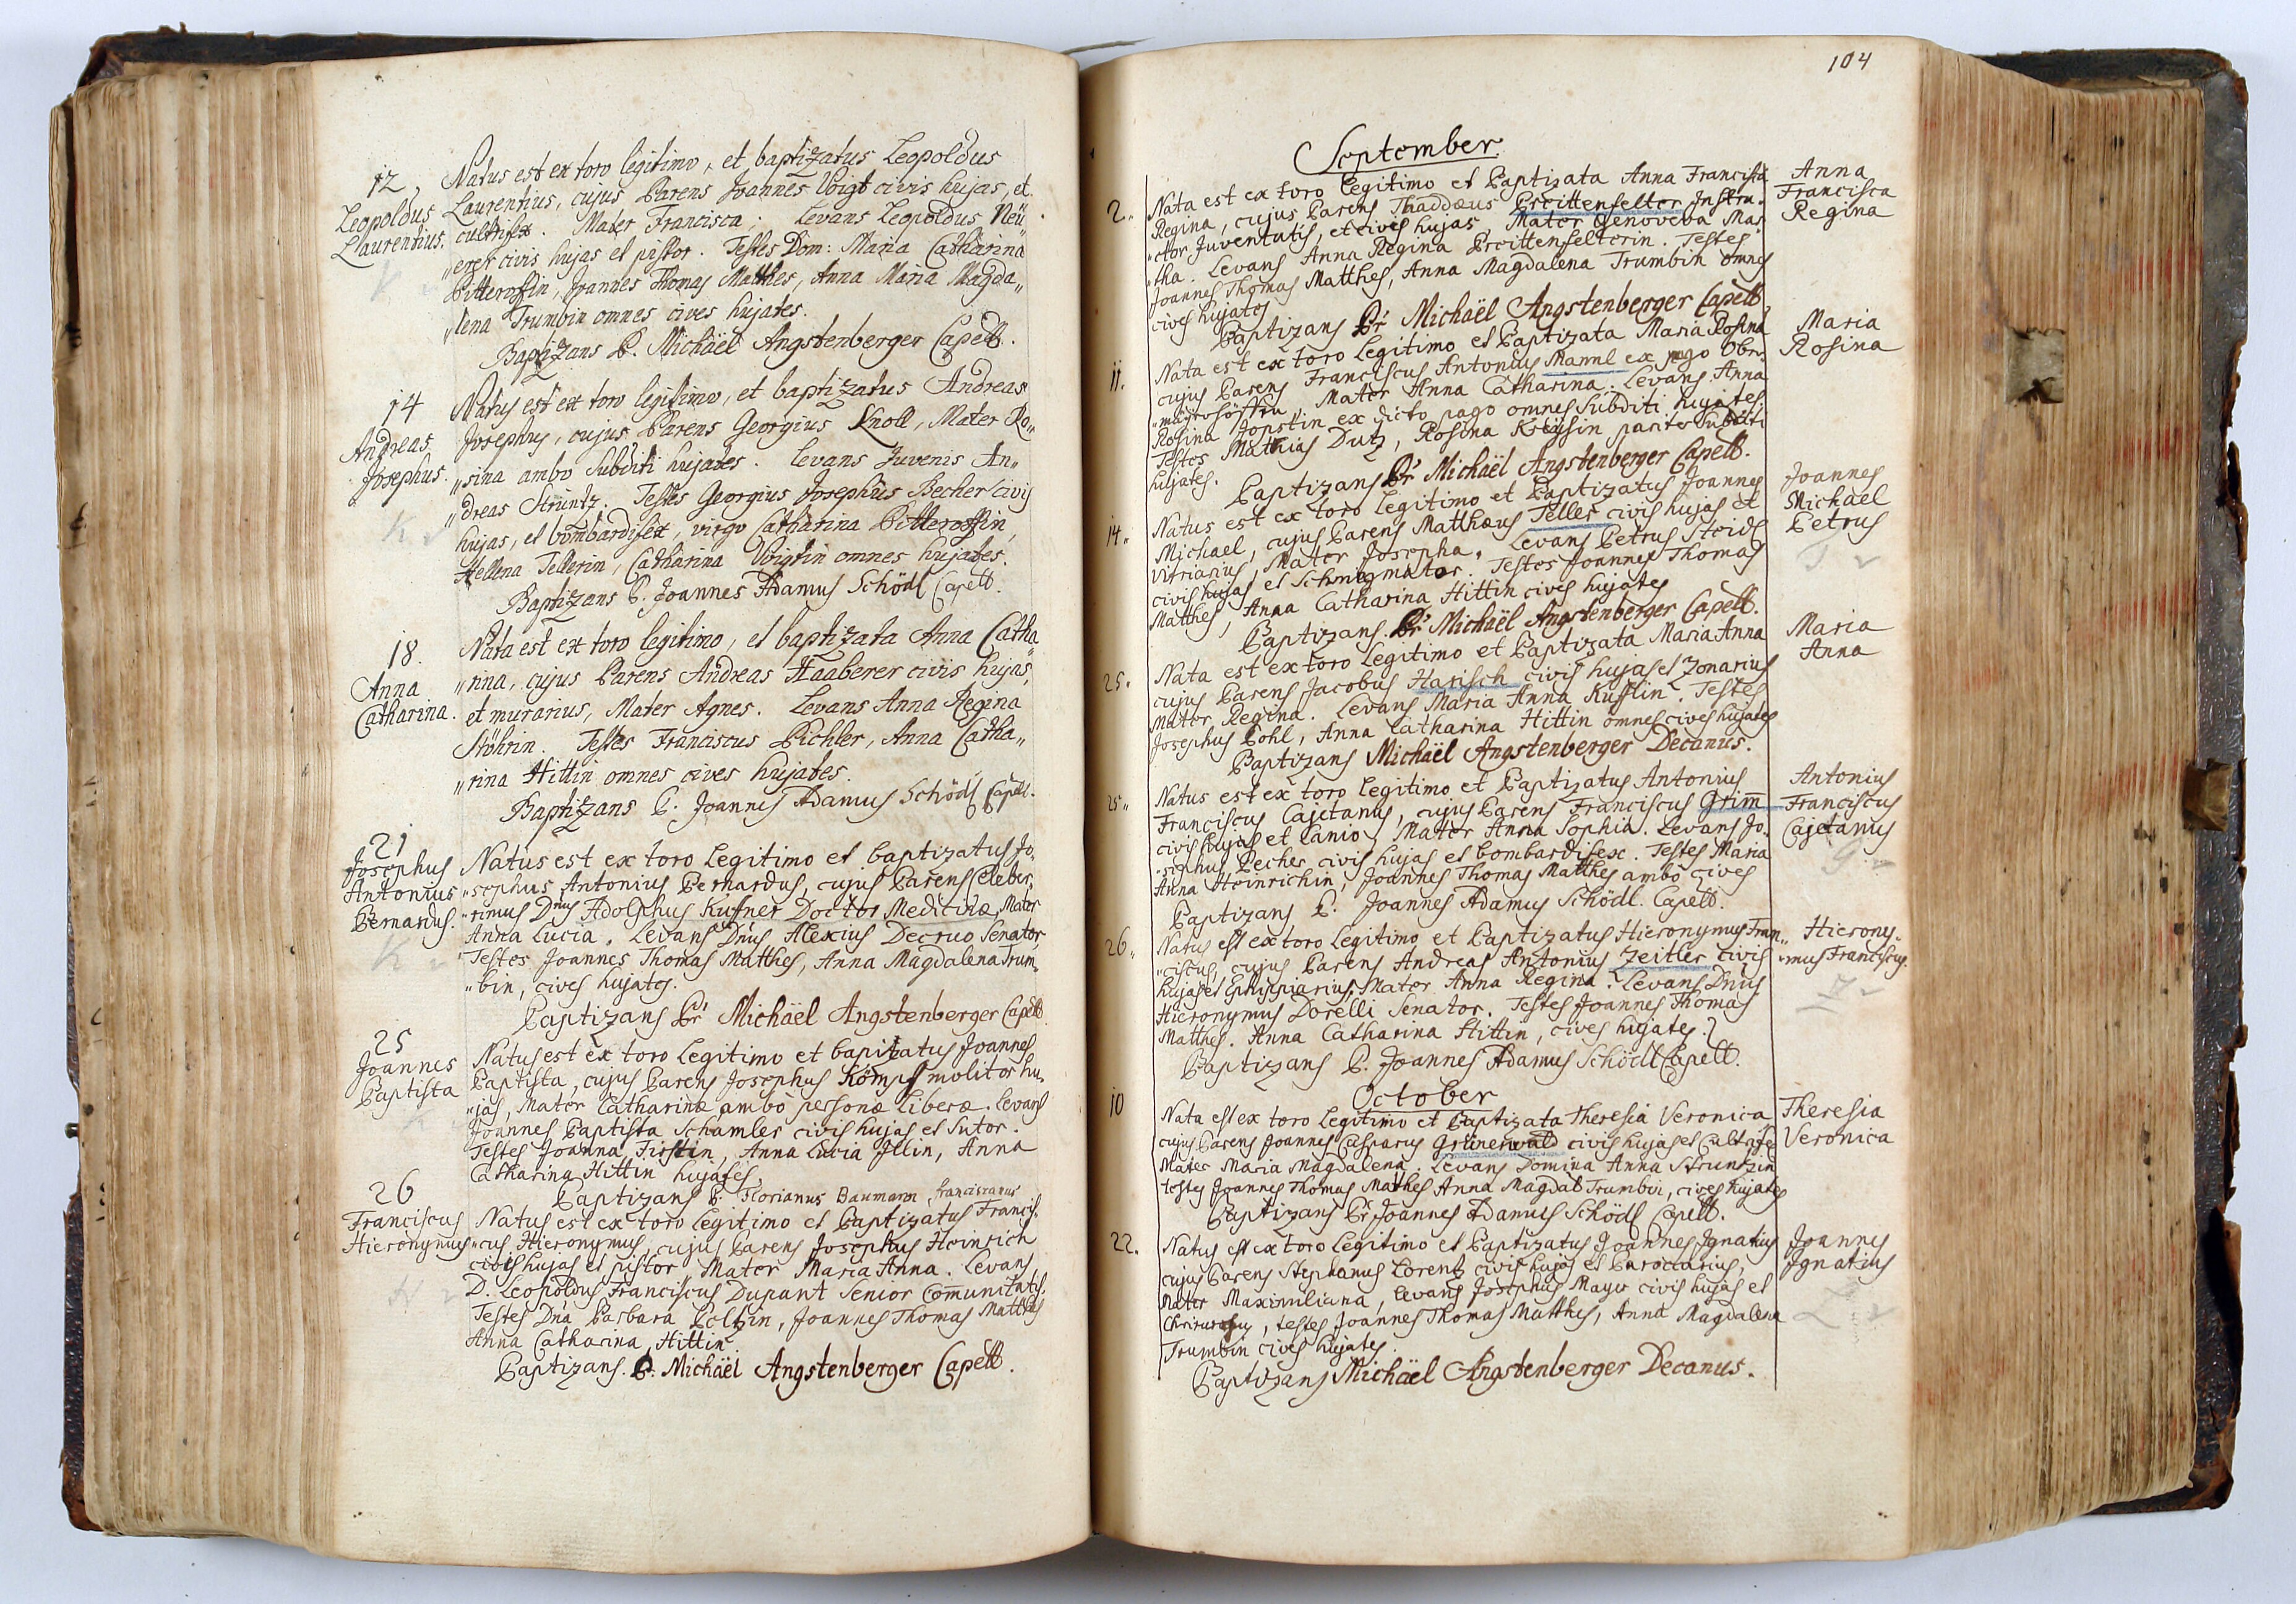 12
Leopoldus
Laurentius.
Natus est ex toro legitimo, et baptizatus Leopoldus
Laurentius, cujus Parens Joannes Voigt civis hujas, et
cultrifex. Mater Francisca; Levans Leopoldus Neü
civis hujas et pistor. Testes Dom: Maria Catharina
Bitteroffin, Joannes Thomas Matthes, Anna Maria Magda„
„lena Trumbin omnes cives hujates.
Baptizans P. Michaël Angstenberger Capell.
14
Andreas
Josephus.
Natus est ex toro legitimo, et baptizatus Andreas
Josephus, cujus Parens Georgius Knoll, Mater Ro„
„sina ambo Subditi hujates. Levans Juvenis An„
„dreas Strüntz. Testes Georgius Josephus Becher civis
hujas, et bombardifex, virgo Catharina Bitteroffin,
Hellena Tellerin, Catharina Voigtin omnes hujates.
Baptizans P. Joannes Adamus Schödl Capell.
18.
Anna
Catharina.
Nata est ex toro legitimo, et baptizata Anna Catha„
„rina, cujus Parens Andreas Haaberer civis hujas,
et murarius, Mater Agnes. Levans Anna Regina
Stöhrin. Testes Franciscus Pichler, Anna Catha„
„rina Hittin omnes cives hujates.
Baptizans P. Joannes Adamus Schödl Capell.
21
Josephus
Antonius
Bernardus.
Natus est ex toro Legitimo et baptizatus Jo„
„sephus Antonius Bernardus, cujus Parens Celeber„
„rimus Dnus Adolphus Kuffner Doctor Medicinæ, Mater
Anna Lucia. Levans Dnus Alexius Decruo Senator,
Testes Joannes Thomas Matthes, Anna Magdalena Trum„
„bin, cives hujates.
Baptizans Pr Michaël Angstenberger Capell.
25
Joannes
Baptista
Natus est ex toro Legitimo et bapitzatus Joannes
Baptista, cujus Parens Josephus Kömpf molitor hu„
„jas, Mater Catharina ambo personæ liberæ. Levans
Joannes Baptista Schamler civis hujas et Sutor.
Testes Joanna Firstin, Anna Lucia Illin, Anna
Catharina Hittin hujates
Baptizans P. Florianus Baumann franciscanus
26
Franciscus
Hieronymus
Natus est ex toro Legitimo et Baptizatus Francis„
„cus Hieronymus, cujus Parens Josephus Heinrich
civis hujas et pistor Mater Maria Anna. Levans
D. Leopoldus Franciscus Dupant Senior Comunitatis.
Testes Dna Barbara Poltzin, Joannes Thomas Matthes
Anna Catharina Hittin.
Baptizans. P. Michaël Angstenberger Capell.
104
September
2.
Nata est ex toro legitimo et Baptizata Anna Francisca
Regina, cujus Parens Thaddæus Breittenfelter Instru„
„ctor Juventutis, et cives hujas, Mater Genoveva Mar„
„tha. Levans Anna Regina Breittenfelterin. Testes
Joannes Thomas Matthes, Anna Magdalena Trumbin omnes
cives hujates
Baptizans Pr Michaël Angstenberger Capell
Anna
Francisca
Regina
11.
Nata est ex toro Legitimo et Baptizata Maria Rosina
cujus Parens Franciscus Antonius Mannl ex pago Obr„
Mater Anna Catharina. Levans Anna
Rosina Jopstin ex dicto pago omnes Subditi hujates
Testes Mathias Dutz, Rosina Kreüsin pariter Subditi
hujates.
Baptizans Pr Michaël Angstenberger Capell.
Maria
Rosina
14.
Natus est ex toro Legitimo et Baptizatus Joannes
Michael, cujus Parens Matthæus Teller civis hujas et
Vitriarius, Mater Josepha. Levans Petrus Steidl
civis hujas et Schmigmator. Testes Joannes Thomas
Matthes, Anna Catharina Hittin cives hujates
Baptizans. Pr Michaël Angstenberger Capell.
Joannes
Michael
Petrus
25.
Nata est ex toro Legitimo et Baptizata Maria Anna
cujus Parens Jacobus Harisch civis hujas et Zonarius
Mater Regina. Levans Maria Anna Kufflin. Testes
Josephus Pohl, Anna Catharina Hittin omnes cives hujates
Baptizans Michaël Angstenberger Decanus.
Maria
Anna
25„
Natus est ex toro Legitimo et Baptizatus Antonius
Franciscus Cajetanus, cujus Parens Franciscus Grim̄
civis hujas et Lanio, Mater Anna Sophia. Levans Jo„
„sephus Becher civis hujas et bombardifex. Testes Maria
Anna Heinrichin, Joannes Thomas Matthes ambo cives
Baptizans P. Joannes Adamus Schödl. Capell.
Antonius
Franciscus
Cajetanus
26„
Natus est ex toro Legitimo et Baptizatus Hieronymus Fran„
„ciscus, cujus Parens Andreas Antonius Zeitler civis
hujas et Ephippiarius, Mater Anna Regina. Levans Dnus
Hieronymus Dorelli Senator. Testes Joannes Thomas
Matthes. Anna Catharina Hittin, cives hujates.
Baptizans P. Joannes Adamus Schödl Capell.
Hierony„
„mus Franciscus.
October
10
Nata est ex toro Legitimo et Baptizata Theresia Veronica
cujus Parens Joannes Casparus Grünerwald civis hujas et Cultrife
Mater Maria Magdalena. Levans Domina Anna Struntzin
testes Joannes Thomas Mathes Anna Magdal Trumbin, cives hujates
Baptizans Pr Joannes Adamus Schödl Capell.
Theresia
Veronica
22.
Natus est ex toro Legitimo et Baptizatus Joannes Ignatius
cujus Parens Stephanus Lorentz civis hujas et Parociarius,
Mater Maximiliana, levans Josephus Mayer civis hujas et
Chirurgus, testes Joannes Thomas Matthes, Anna Magdalena
Trumbin cives hujates.
Baptizans Michaël Angstenberger Decanus.
Joannes
Ignatius